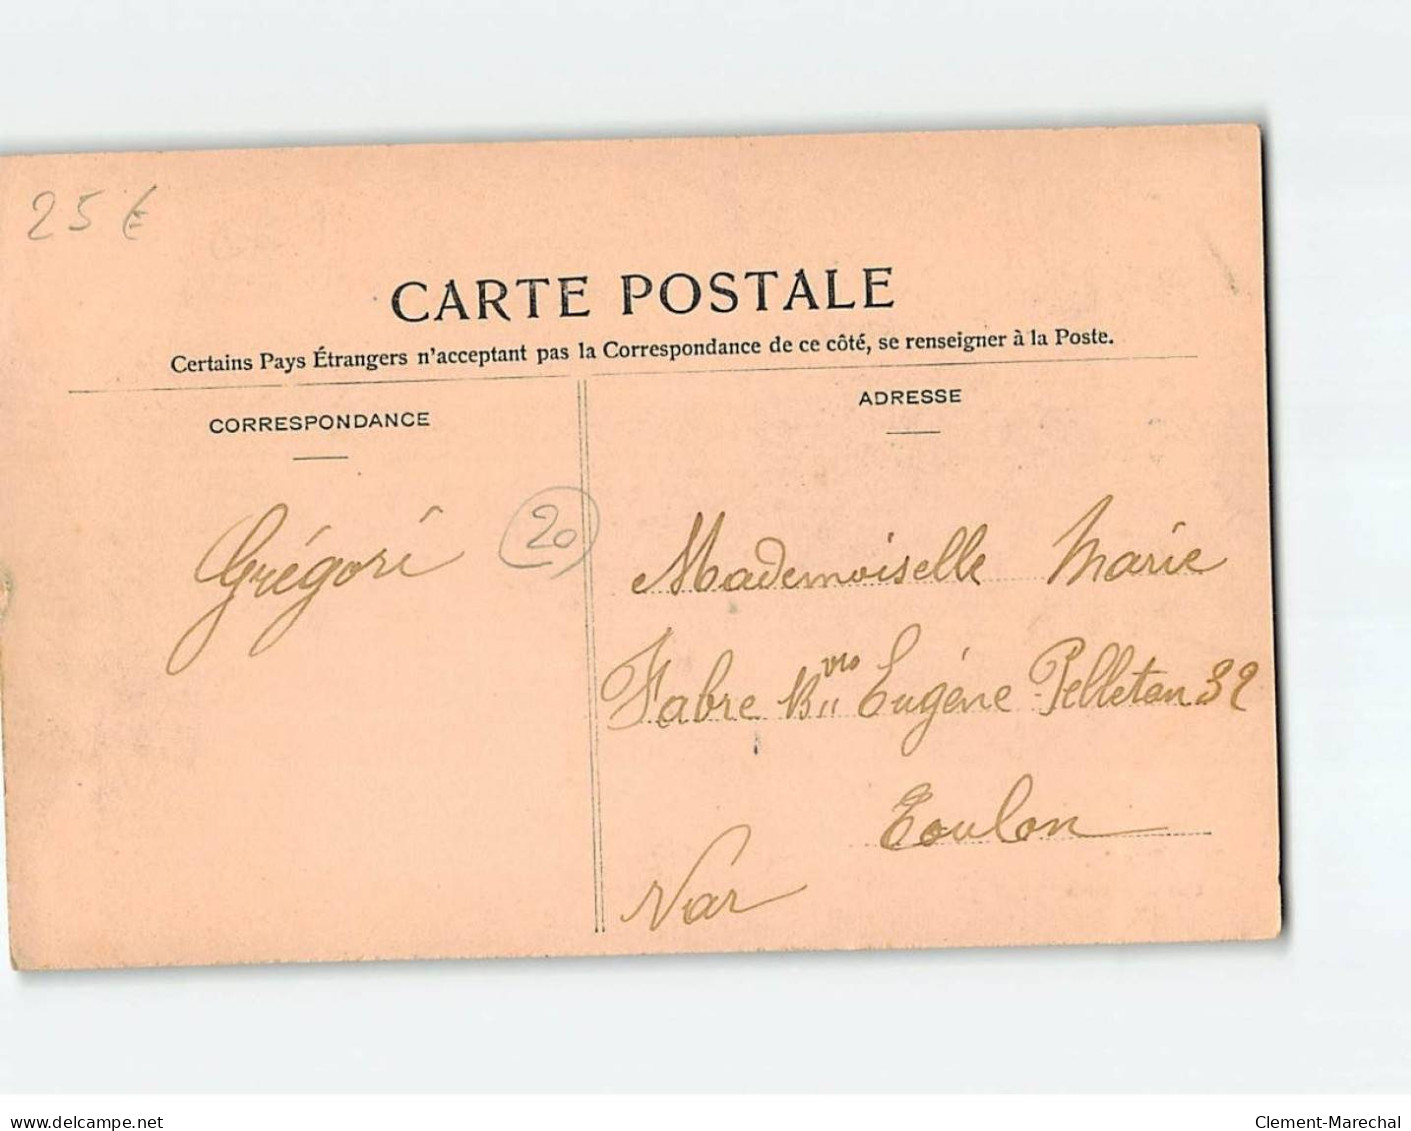 25 €
CARTE POSTALE
Certains Pays Étrangers n'acceptant pas la Correspondance de ce côté, se renseigner à la Poste.
CORRESPONDANCE
Grégori
20
ADRESSE
Mademoiselle Marie
Fabre Eugène Pelletan 32
Toulon
Var
delcampe.net
Clement-Marechal